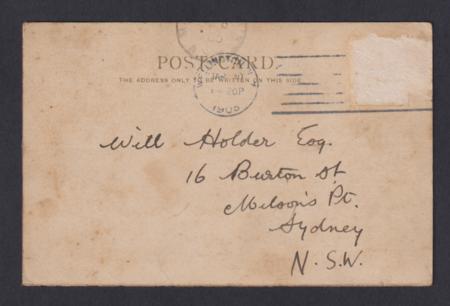 POST CARD.
THE ADDRESS ONLY TO BE WRITTEN ON THIS SIDE
20P
1905
Will Holder Esq.
16 Burton St
Milson's Pt.
Sydney
N.S.W.